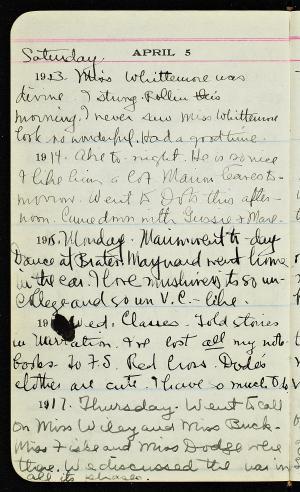 APRIL 5
Saturday
1913. Miss Whittemore was
divine. I stung Rollin this
morning. I never saw Miss Whittemore
look so wonderful. Had a good time.
1914. Abe to-night. He is so nice
I like him a lot. Maum leaves to-
morrow. Went to Dots this after-
noon. Came down with Gussie + Marc.
1915. Monday. Maum went to-day
Dance at Braton Maynard went home
in the car. I love mushiness to so un-
college and so un V.C.-like.
191 Wed. Classes. Told stories
in Narration. I've lost all my note
books. To F.S. Red Cross. Dode's
clothes are cute. I have so much to
1917. Thursday. Went to call
on Miss Wiley and Miss Buck.
Miss Fiske and Miss Dodge were
there. We discussed the war in
all its phases.